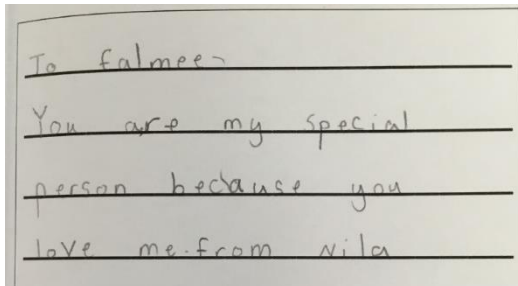 To falmee
You are my special
person because you
love me. from Nila